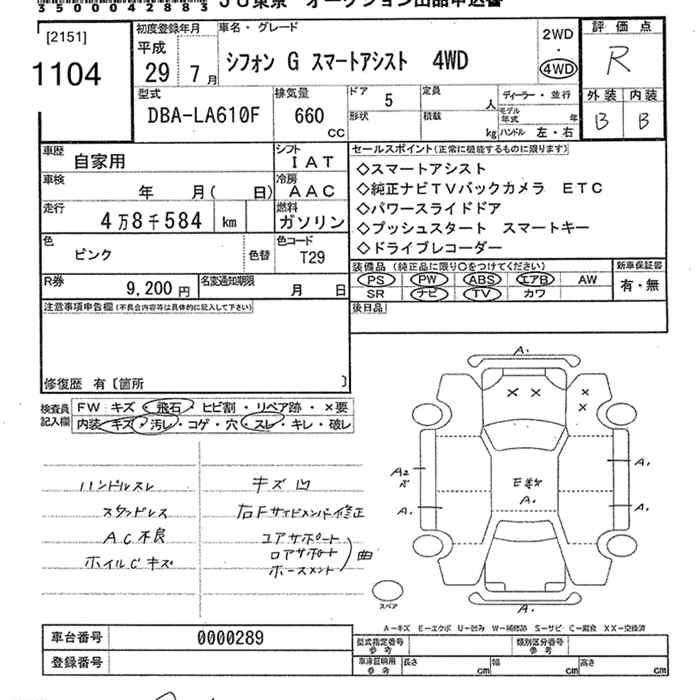 35000042883 JU東京 オークション出品申込書
[2151]
1104
初度登録年月
平成
29年 7月
車名・グレード
シフォン G スマートアシスト 4WD
2WD
・
4WD
評価点
R
外装 内装
B B
型式
DBA-LA610F
排気量
660
CC
ドア
5
形状
定員
人
積載
kg
ディーラー・並行
モデル年式 年
ハンドル 左・右
車歴
自家用
シフト
IAT
車検
年 月( 日)
冷房
AAC
走行
4万8千584 km
燃料
ガソリン
色
ピンク
色替
色コード
T29
R券
9,200円
名変通知期限
月 日
セールスポイント(正常に機能するものに限ります)
◇スマートアシスト
◇純正ナビTVバックカメラ ETC
◇パワースライドドア
◇プッシュスタート スマートキー
◇ドライブレコーダー
装備品(純正品に限り○をつけてください)
PS PW ABS エアB AW
SR ナビ TV カワ
新車保証書
有・無
後日品
注意事項申告欄(不具合内容等は具体的に記入して下さい)
修復歴 有〔箇所 〕
検査員記入欄
FW キズ・飛石・ヒビ割・リペア跡・×要
内装・キズ・汚レ・コゲ・穴・スレ・キレ・破レ
ハンドルスレ
スタッドレス
AC不良
ホイルCキズ
キズ凹
右Fサイドメンバー修正
コアサポート
ロアサポート
ホースメント
曲
A.
A.
A2
A.
A.
E
A.
A.
スペア
A-キズ E-エクボ U-凹み W-補修跡 S-サビ C-腐食 XX-交換済
車台番号 0000289
登録番号
型式指定番号
参考
類別区分番号
参考
車庫証明用
参考
長さ cm
幅 cm
高さ cm